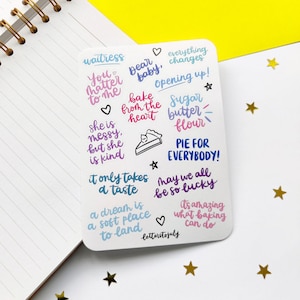 waitress
everything
changes
Dear
baby,
You
matter
to me
opening up!
bake
from the
heart
Sugar
butter
flour
she is
messy,
but she
is kind
PIE FOR
EVERYBODY!
it only takes
a taste
may we all
be so lucky
a dream is
a soft place
to land
it's amazing
what baking
can do
letteritsjuly